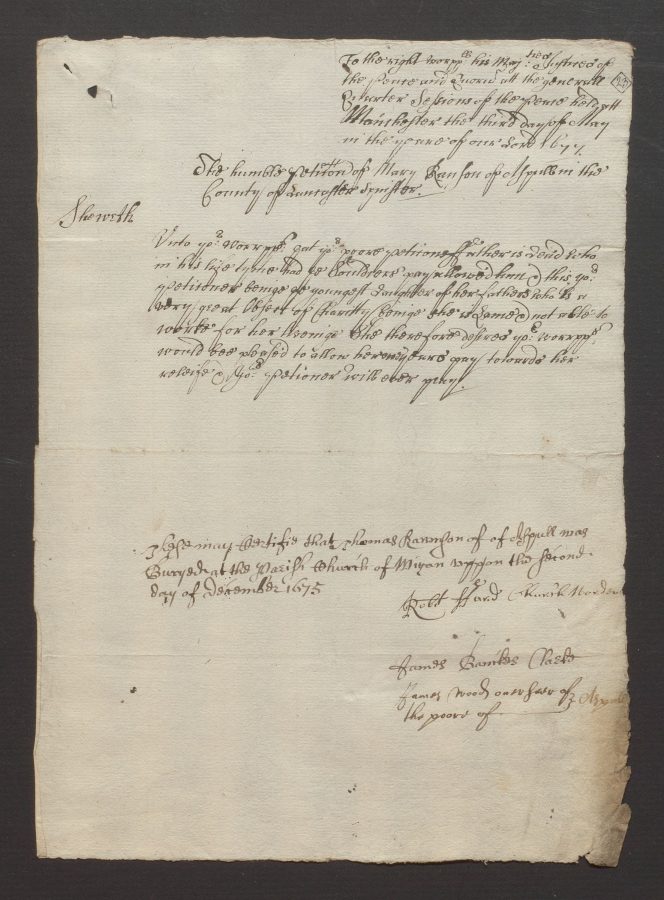 To the right worpp:ll his Maj:ties Justices of
the Peace and Quorum att the generall
Quarter Sessions of the Peace held att
Manchester the third day of May
in the yeare of our Lord 1677
The humble Petition of Mary Ranson of Aspull in the
County of Lancaster Spinster.
Sheweth
Unto yo:r worpps: that yo:r poore Petioner ffather is dead who
in his life tyme had a souldiers pay allowed him & this yo:r
Petitioner beinge youngest daughter of her fathers who is a
very great Object of Charity beinge she is Lame & not able to
worke for her liveinge She therefore desires yo:r worpps:
would bee pleased to allow her yeares pay towards her
releife & Yo:r Petioner will ever pray.
These may Certifie that Thomas Rannson of of Aspull was
Buryed at the Parish Church of Wigan uppon the second
day of december 1675
Robt fford Church Warden
James Bankes Clarke
James Wood overseer of
the poore of Aspull